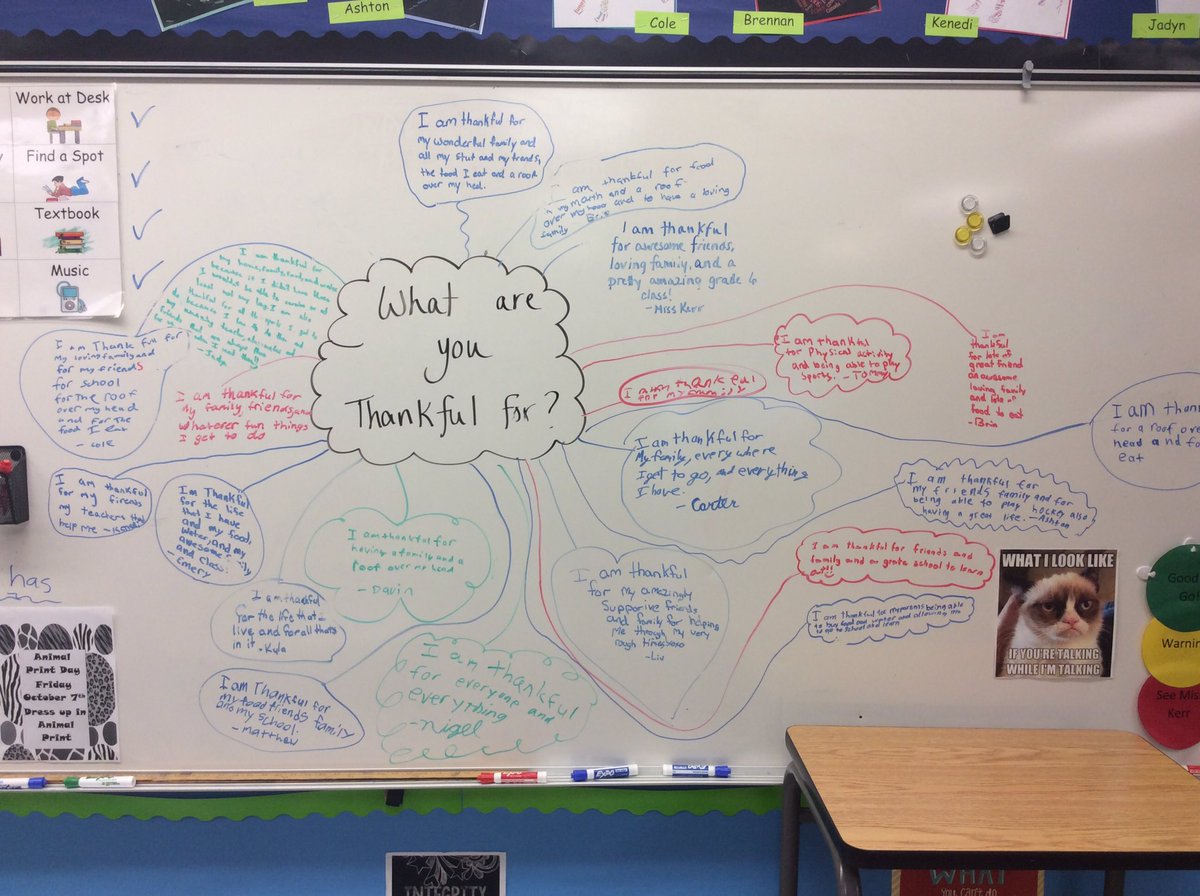 Ashton
Cole
Brennan
Kenedi
Jadyn
Work at Desk
Find a Spot
Textbook
Music
I am thankful for
my wonderful family and
all my stuf and my frends,
the food I eat and a roof
over my hed.
I am thankful for food
in my mouth and a roof
over my head and to have a loving
family
I am thankful
for awesome friends,
loving family, and a
pretty amazing grade 6
class!
- Miss Kerr
What are
you
Thankful for?
I am thankful for
my home, family, food, and water
because if I didn't have these
I am Thankfull for
My loving family and
for my friends
for school
for the roof
over my head
and for the
food I eat
- Cole
I am thankful for
my family friends, and
whatever fun things
I get to do
I am thankful
for physical activity
and being able to play
sports. - Tommy
for my family
I am
thankful
for lots of
great friend
an awesome
loving family
and lots of
food to eat
- Brin
I am
for a roof
head and
eat
I am thankful for
My family, every where
I get to go, and everything
I have.
- Carter
I am thankful for
my friends family and for
being able to play hockey also
having a great life. - Ashton
I am thankful
for my firends
my teachers that
help me -
I'm Thankful
for the life
that I have
and my food,
water, and my
awesome family
and class.
- Emery
I am thankful for
having a family and a
roof over my head
- Davin
I am thankful
for the life that
live and for all thats
in it. - Kyla
I am thankful
for my amazingly
Supportive friends
and family for helping
me through my very
rough times
- Liv
I am thankful for friends and
family and or grate school to learn
at!!
I am thankful for my parents being able
to buy food and water and allowing me
to go to school and learn
I am Thankful for
my food friends family
and my school.
- matthew
I am thankful
for everyone and
everything
- nigel
has
Animal
Print Day
Friday
October 7th
Dress up in
Animal
Print
WHAT I LOOK LIKE
IF YOU'RE TALKING
WHILE I'M TALKING
Good
Warnin
See Mis
Kerr
EXPO
EXPO
INTEGRITY
WHAT
YOU CAN'T DO